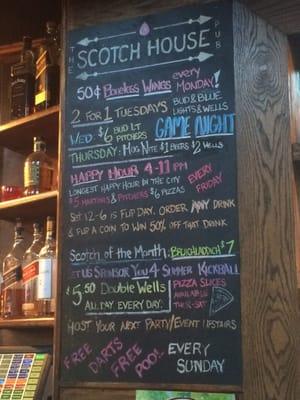 THE SCOTCH HOUSE PUB
50¢ Boneless Wings every MONDAY!
2 FOR 1 TUESDAYS BUD & BLUE
LIGHTS & WELLS
WED: $6 BUD LT PITCHERS GAME NIGHT
THURSDAY: MUG NITE $1 BEERS $2 WELLS
HAPPY HOUR 4-11 PM
LONGEST HAPPY HOUR IN THE CITY EVERY FRIDAY
$5 MARTINIS & PITCHERS $6 PIZZAS
SAT 12-6 IS FLIP DAY. ORDER ANY DRINK
& FLIP A COIN TO WIN 50% OFF THAT DRINK
Scotch of the Month: BRUICHLADDICH $7
LET US SPONSOR YOU 4 SUMMER KICKBALL
$5.50 Double Wells
ALL DAY EVERY DAY.
PIZZA SLICES
AVAILABLE
THUR-SAT
HOST YOUR NEXT PARTY/EVENT UPSTAIRS
FREE DARTS FREE POOL EVERY SUNDAY